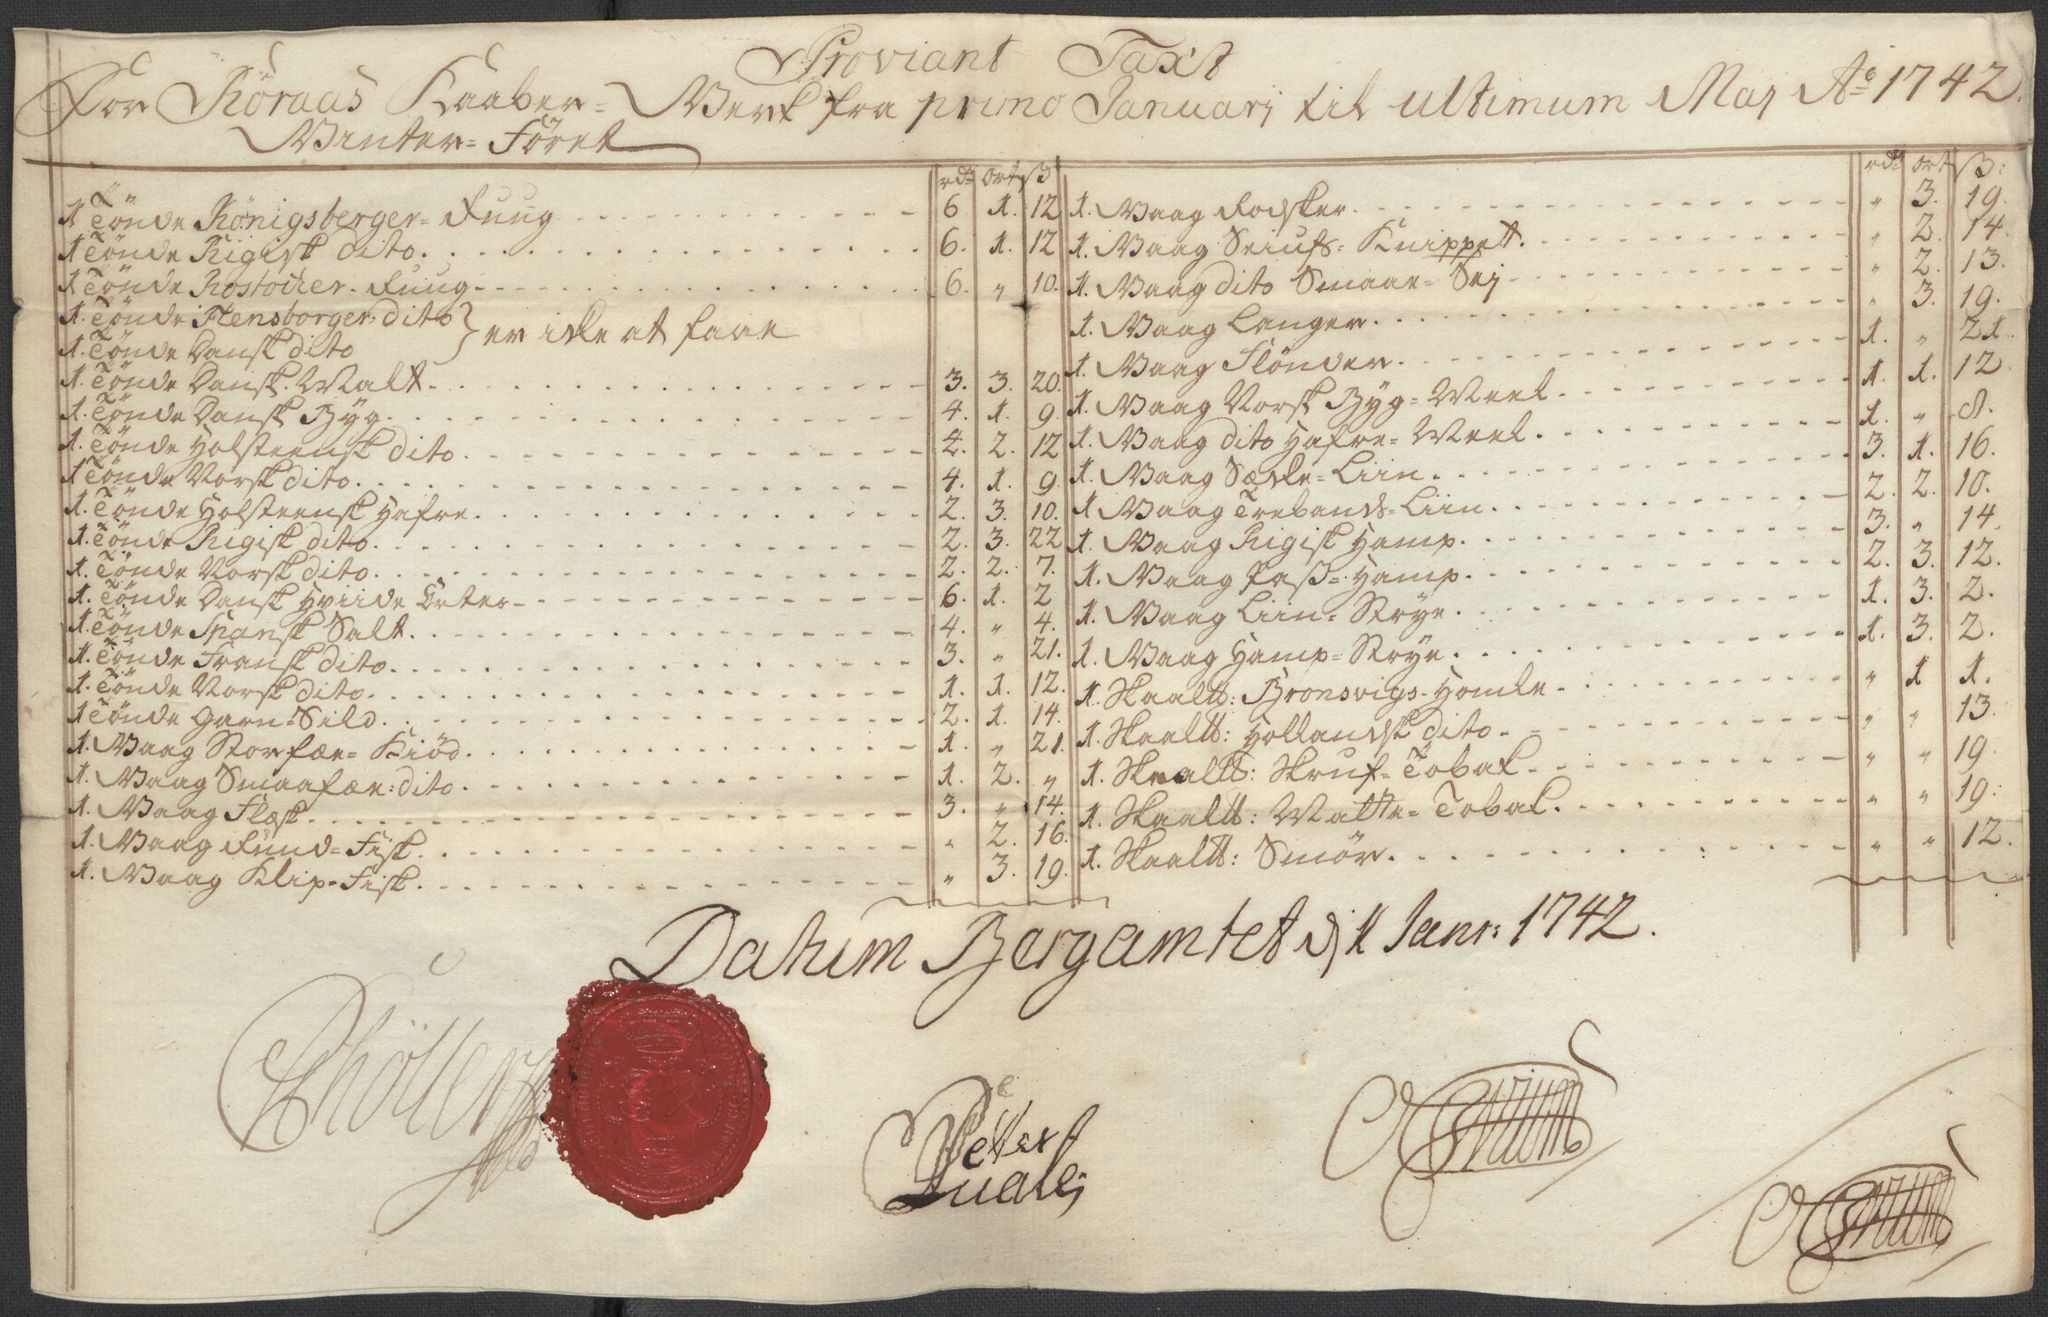 Proviant Taxt
For Röraas Kaaber-Werk fra primo Januarij til ultimum Maj Ao 1742.
Winter-Föret
rdr ort ß
1 Tönde Königsberger-Ruug 6 1. 12
1 Tönde Rigisk dito 6. 1. 12
1 Tönde Rostocker-Ruug 6. " 10.
1. Tönde Flensborger dito } er icke at faae
1. Tönde Dansk dito
1. Tönde Dansk Malt 3. 3. 20.
1. Tönde Dansk Byg 4. 1. 9.
1. Tönde Holsteensk dito 4. 2. 12
1 Tönde Norsk dito 4. 1. 9.
1. Tönde Holsteensk Hafre 2. 3. 10.
1. Tönde Rigisk dito 2. 3. 22
1. Tönde Norsk dito 2. 2. 7.
1. Tönde Dansk Hviide Erter 6. 1. 2
1. Tönde Spansk Salt 4. " 4.
1. Tönde Fransk dito 3. " 21.
1. Tönde Norsk dito 1. 1. 12.
1 Tönde Garn-Sild 2. 1. 14.
1. Waag Storfæe-Kiöd 1. " 21.
1. Waag Smaafæe-dito 1. 2. "
1. Waag Flesk 3. " 14.
1. Waag Rund-Fisk " 2. 16.
1. Waag Klip-Fisk " 3. 19.
rdr ort ß:
1. Waag Rodskær " 3. 19.
1. Waag Seiufs-Knippet " 2. 14.
1. Waag dito Smaae-Sej " 2. 13.
1. Waag Langer " 3. 19.
1. Waag Flönder 1. " 21.
1. Waag Norsk Byg-Meel 1. 1. 12
1. Waag dito Hafre-Meel 1. " 8.
1. Waag Sæcke-Liin 3. 1. 16.
1. Waag Trebands-Liin 2. 2. 10.
1. Waag Rigisk Hamp 3. " 14.
1. Waag Paß-Hamp 2. 3. 12.
1. Waag Liin-Strye 1. 3. 2.
1. Waag Hamp-Strye 1. 3. 2.
1. Skaaltt: Bronsvigs-Homle " 1 1.
1. Skaaltt: Hollandsk dito " " 13.
1. Skaaltt: Skruf-Tobak " " 19.
1. Skaaltt: Matte-Tobak " " 19:
1. Skaaltt: Smör " " 12.
Datum Bergamtet d. 1 Janr: 1742.
Petter